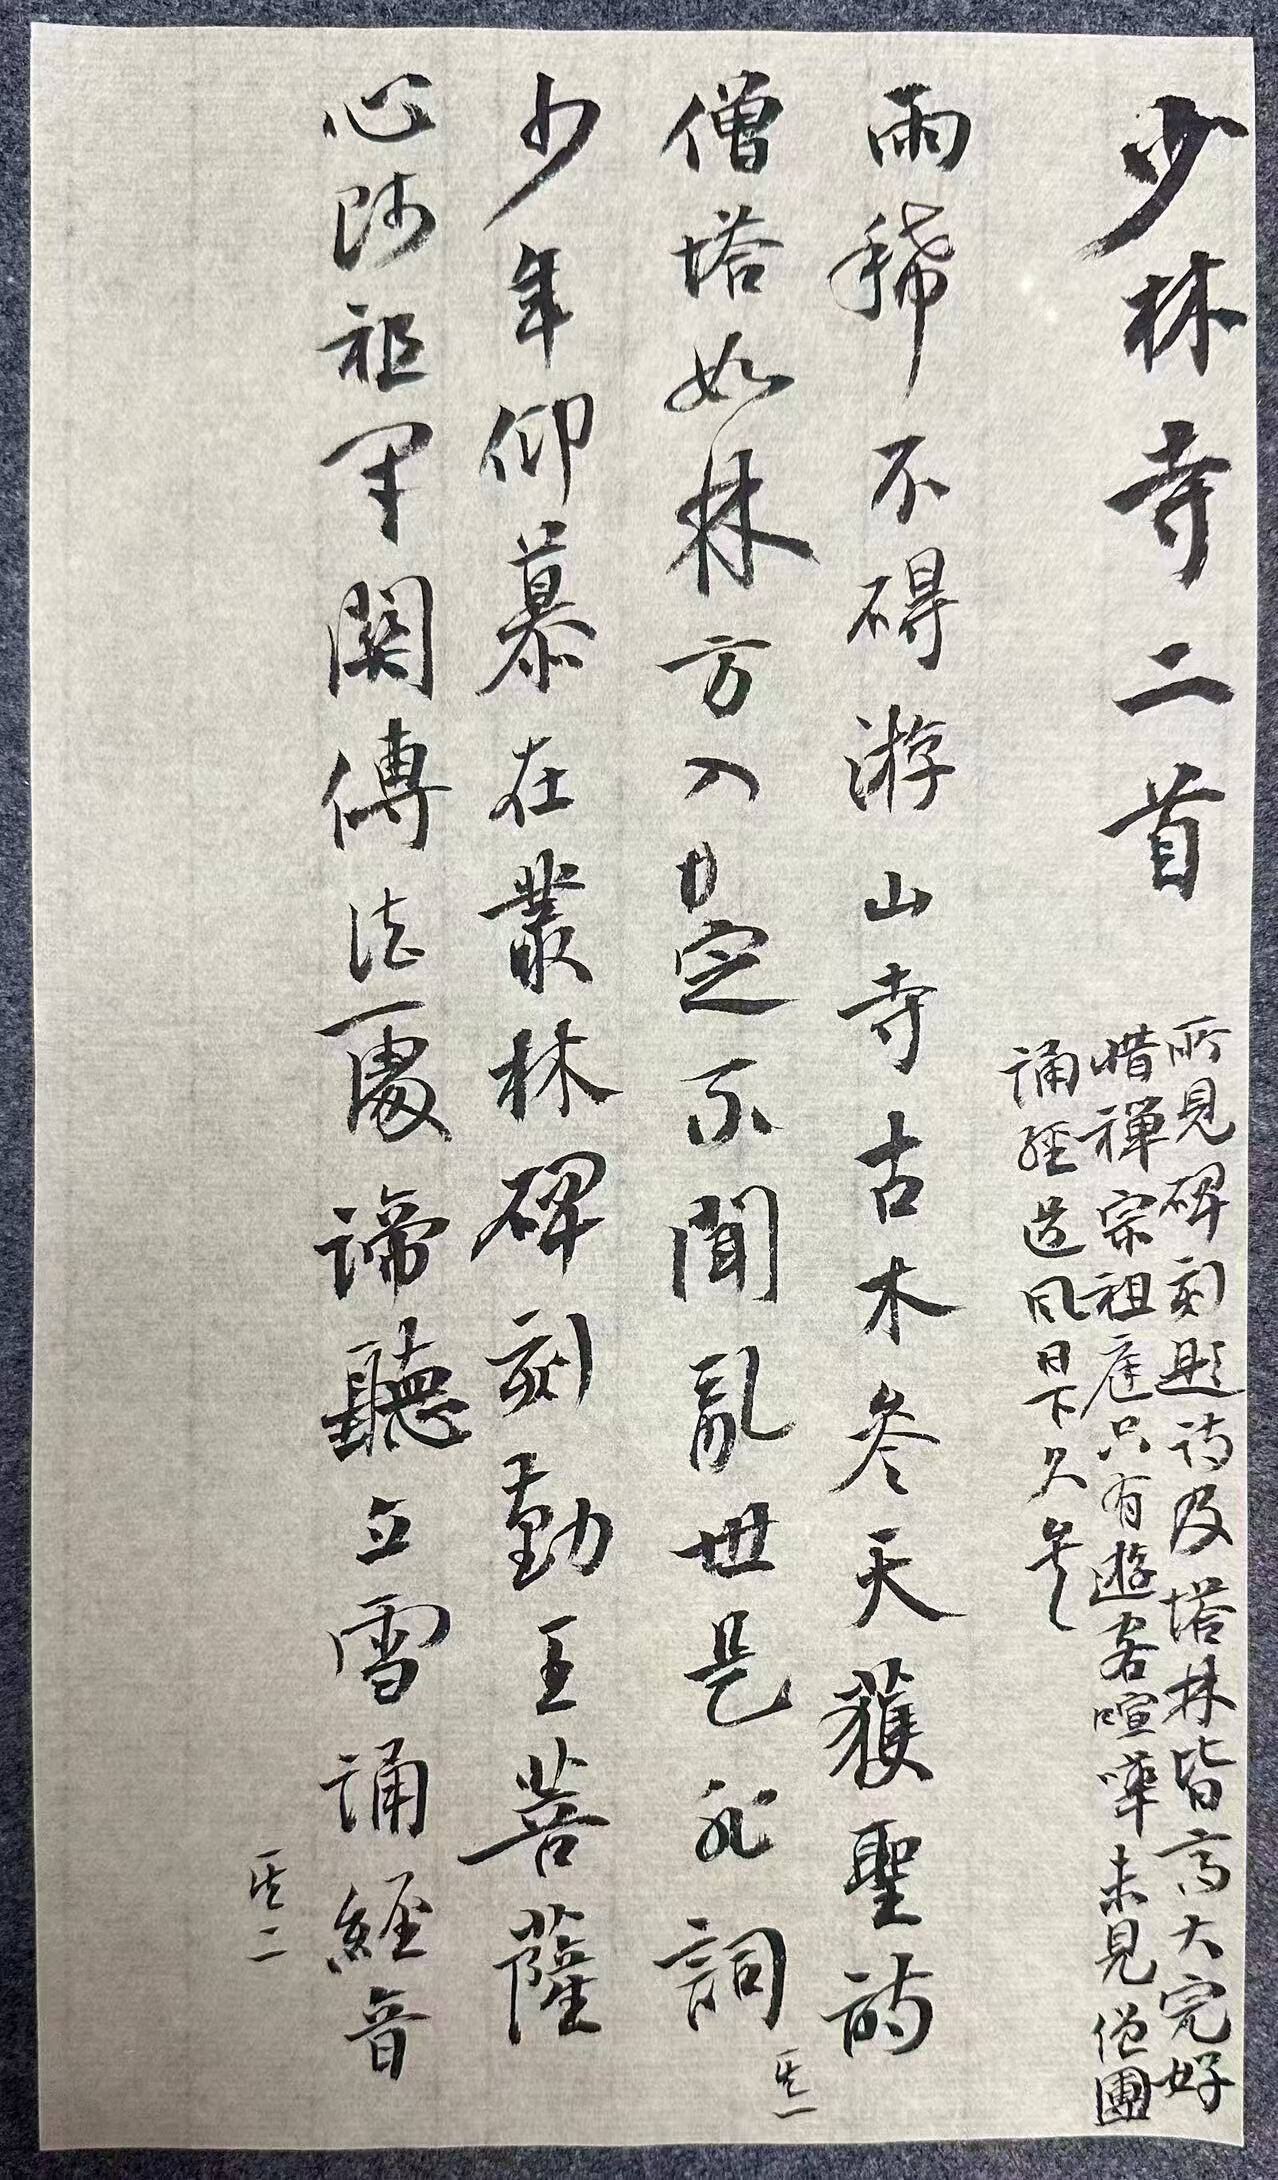 少林寺二首
所見碑刻題诗及塔林皆高大完好
惜禪宗祖庭只有遊客喧嘩未見僧團
誦經道风日下久矣
雨稀不碍游山寺古木参天獲聖詩
僧塔如林方入定不聞亂世是非詞
其一
少年仰慕在叢林碑刻勤王菩薩
心师祖關傳法處諦聽立雪誦經音
其二